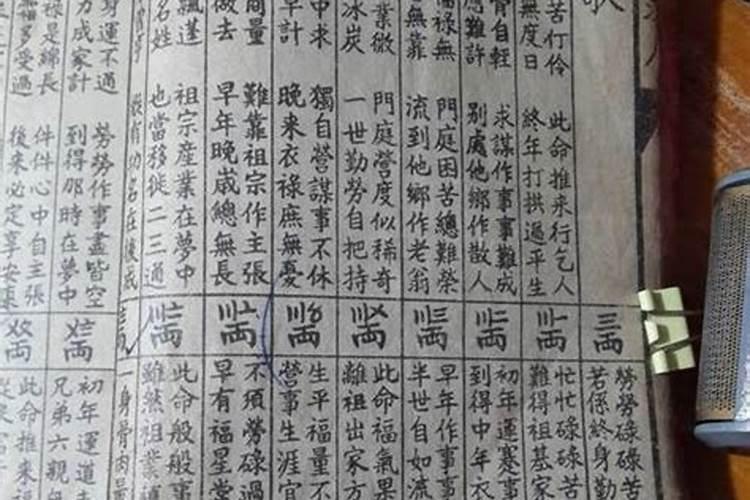 苦仃伶 此命推來行乞人
無度日 終年打拱過平生
骨自輕 求謀作事事難成
應難許 別處他鄉作散人
福祿無 門庭困苦總難榮
無靠 流到他鄉作老翁
業微 門庭營度似稀奇
冰炭 一世勤勞自把持
中求 獨自營謀事不休
早計 晚來衣祿庶無憂
商量 難靠祖宗作主張
做去 早年晚歲總無長
飄蓬 祖宗產業在夢中
名姓 也當移徙二三通
身運不通 勞勞作事盡皆空
力成家計 到得那時在夢中
祿是綿長 件件心中自主張
福多受過 後來必定享安康
三兩
勞勞碌碌苦
若係終身勤
〣一兩
忙忙碌碌苦
難得祖基家
〣二兩
初年運蹇事
到得中年衣
〣三兩
早年作事事
半世自如流
〣〤兩
此命福氣果
離祖出家方
兩
生平福量不
營事生涯宜
兩
不須勞碌過
早有福星堂
兩
此命般般事
雖然祖業
一身骨肉
兩
初年運道
兄弟六親
兩
此命推來福